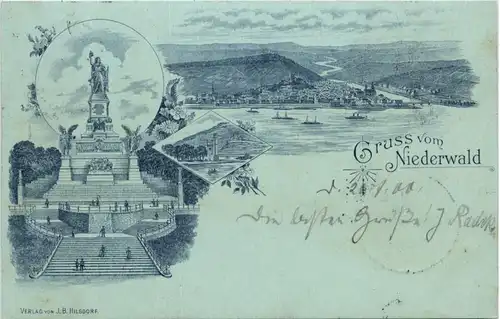 Gruss vom
Niederwald
Die besten Grüße! J
VERLAG VON J.B. HILSDORF.